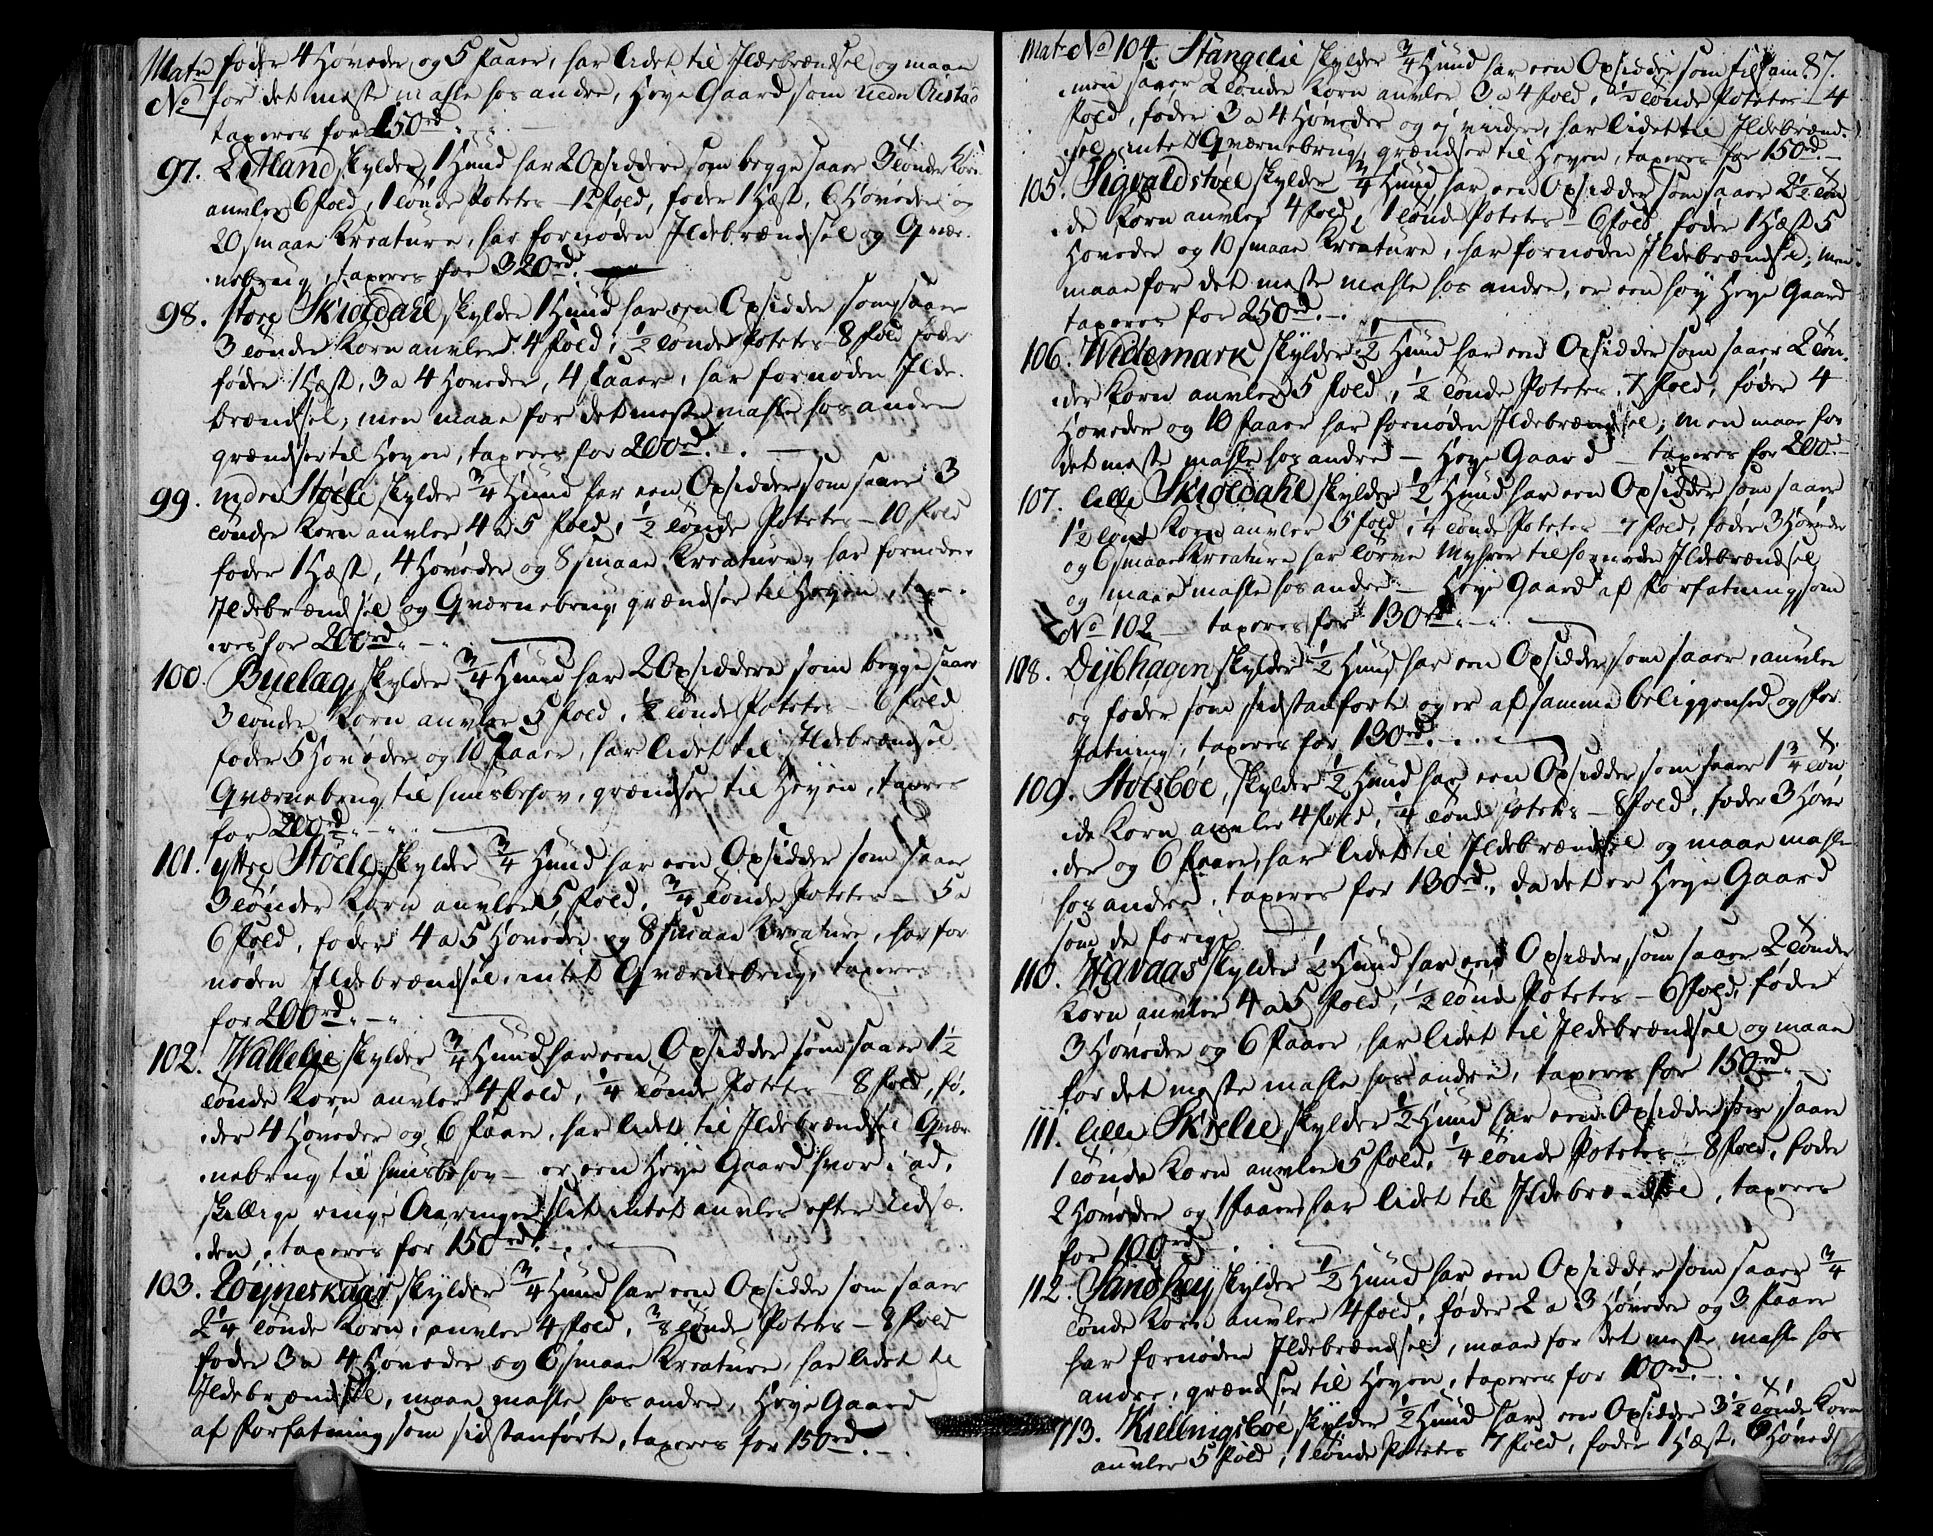 Matr føder 4 Høveder og 5 Faaer, har lidet til Ildebrændsel og maae
No for det meste mahle hos andre, Heye Gaard som
taxeres for 150rd
97. Letland skylder 1 Hund har 2 Opsiddere som begge saaer 3 tønder Korn
anvler 6 fold, 1 tønde Potetes – 12 fold, føder 1 Hæst, 6 Høveder og
20 smaae Kreature, har fornøden Ildebrændsel og Qvær-
nebrug, taxeres for 320rd.
98. store Skioldahl skylder 1 Hund har een Opsidder som saaer
3 tønder Korn anvler 4 fold, 1/2 tønde Potetes – 8 fold føder
føder 1 Hæst, 3 a 4 Hoveder, 4 Faaer, har fornøden Ilde-
brændsel, men maae for det meste mahle hos andre
grændser til Heyen, taxeres for 200rd.
99. indre Støele skylder 3/4 Hund har een Opsidder som saaer 3
tønder Korn anvler 4 a 5 fold, 1/2 tønde Potetes – 10 fold
føder 1 Hæst, 4 Høveder og 8 smaae Kreature, har fornøden
Ildebrændsel og Qværnebrug, grændser til Heyen, taxe-
res for 200rd
100. Buelæg, skylder 3/4 Hund har 2 Opsiddere som begge saaer
3 tønder Korn anvler 5 fold, 1/2 tønde Potetes – 6 fold
føder 5 Høveder og 10 Faaer, har lidet til Ildebrændsel
Qværnebrug til huusbehov, grændser til Heyen, taxeres
for 200rd
101. yttre Støele, skylder 3/4 Hund har een Opsidder som saaer
3 tønder Korn anvler 5 fold, 3/4 tønde Potetes – 5 a
6 fold, føder 4 a 5 Hoveder og 8 smaae Kreature, har for-
nøden Ildebrændsel, intet Qværnebrug, taxeres
for 200rd
102. Wattelie skylder 3/4 Hund har een Opsidder som saaer 1 1/2
tønde Korn anvler 4 fold, 1/4 tønde Potetes – 8 fold, fø-
der 4 Hoveder og 6 Faaer, har lidet til Ildebrændsel Qvær-
nebrug til huusbehov – er een Heye Gaard hvor i ad-
skellige ringe Aaringer slet intet anvles efter Udsæ-
den, taxeres for 150rd.
103. skylder 3/4 Hund har een Opsidder som saaer
2 1/4 tønde Korn, anvler 4 fold, 3/8 tønde Potetes – 8 fold
føder 3 a 4 Høveder og 6 smaae Kreature, har lidet til
Ildebrændsel, maae mahle hos andre, Heye Gaard
af Forfatning som sidstanførte, taxeres for 150rd.
Matr No 104. Stangelie skylder 3/4 Hund har een Opsidder som tilsam- 87.
men saaer 2 tønde Korn anvler 3 a 4 fold, 1/2 tønde Potetes – 4
fold, føder 3 a 4 Høveder og ej videre, har lidet til Ildebrænd-
sel intet Qværnebrug, grændser til Heyen, taxeres for 150rd.
105. Sigvaldstøel skylder 3/4 Hund har een Opsidder som saaer 2 1/2 tøn-
de Korn anvler 4 fold, 1 tønde Potetes – 6 fold, føder 1 Hæst 5
Høveder og 10 smaae Kreature, har fornøden Ildebrændsel, men
maae for det meste mahle hos andre, er een høy Heye Gaard
taxeres for 250rd.
106. Widemark skylder 1/2 Hund har een Opsidder som saaer 2 tøn-
der Korn anvler 5 fold, 1/2 tønde Potetes 7 fold, føder 4
Høveder og 10 Faaer har fornøden Ildebrændsel, men maae for
det meste mahle hos andre – Heye Gaard – taxeres for 200rd
107. lille Skioldahl skylder 1/2 Hund har een Opsidder som saaer
1 1/2 tønde Korn anvler 5 fold, 1/4 tønde Potetes – 7 fold, føder 3 Høveder
og 6 smaae Kreature har torve Myhrer til fornøden Ildebrændsel
og maae mahle hos andre – Heye Gaard af Forfatning som
No 102 – taxeres for 130rd
108. Dybhagen skylder 1/2 Hund har een Opsidder, som saaer, anvler
og føder som sidstanførte og er af samme beliggenhed og For-
fatning, taxeres for 130rd.
109. Stolsbøe, skylder 1/2 Hund har een Opsidder som saaer 1 3/4 tøn-
de Korn anvler 4 fold, 1/4 tønde Potetes – 8 fold, føder 3 Høve-
der og 6 Faaer, har lidet til Ildebrændsel og maae mahle
hos andre, taxeres for 130rd., da det er Heye Gaard
som de forige
110. Havaas skylder 1/2 Hund har een Opsidder, som saaer 2 tønder
Korn anvler 4 a 5 fold, 1/2 tønde Potetes – 6 fold, føder
3 Høveder og 6 Faaer, har lidet til Ildebrændsel og maae
for det meste mahle hos andre, taxeres for 150rd.
111. lille Skielie skylder 1/2 Hund har een Opsidder som saaer
1 tønde Korn anvler 5 fold, 1/4 tønde Potetes – 8 fold, føder
2 Høveder og 1 Faaer har lidet til Ildebrændsel, taxeres
for 100rd
112. Sandhey skylder 1/2 Hund har een Opsidder som saaer 3/4
tønde Korn anvler 4 fold, føder 2 a 3 Høveder og 3 Faaer
har fornøden Ildebrændsel, maae for det meste mahle hos
andre, grændser til Heyen, taxeres for 100rd.
113. Kiellingsbøe skylder 1/2 Hund har een Opsidder 3 1/2 tønde Korn
anvler 5 fold, 1 tønde Potetes 7 fold, føder 1 Hæst, 6 Høved